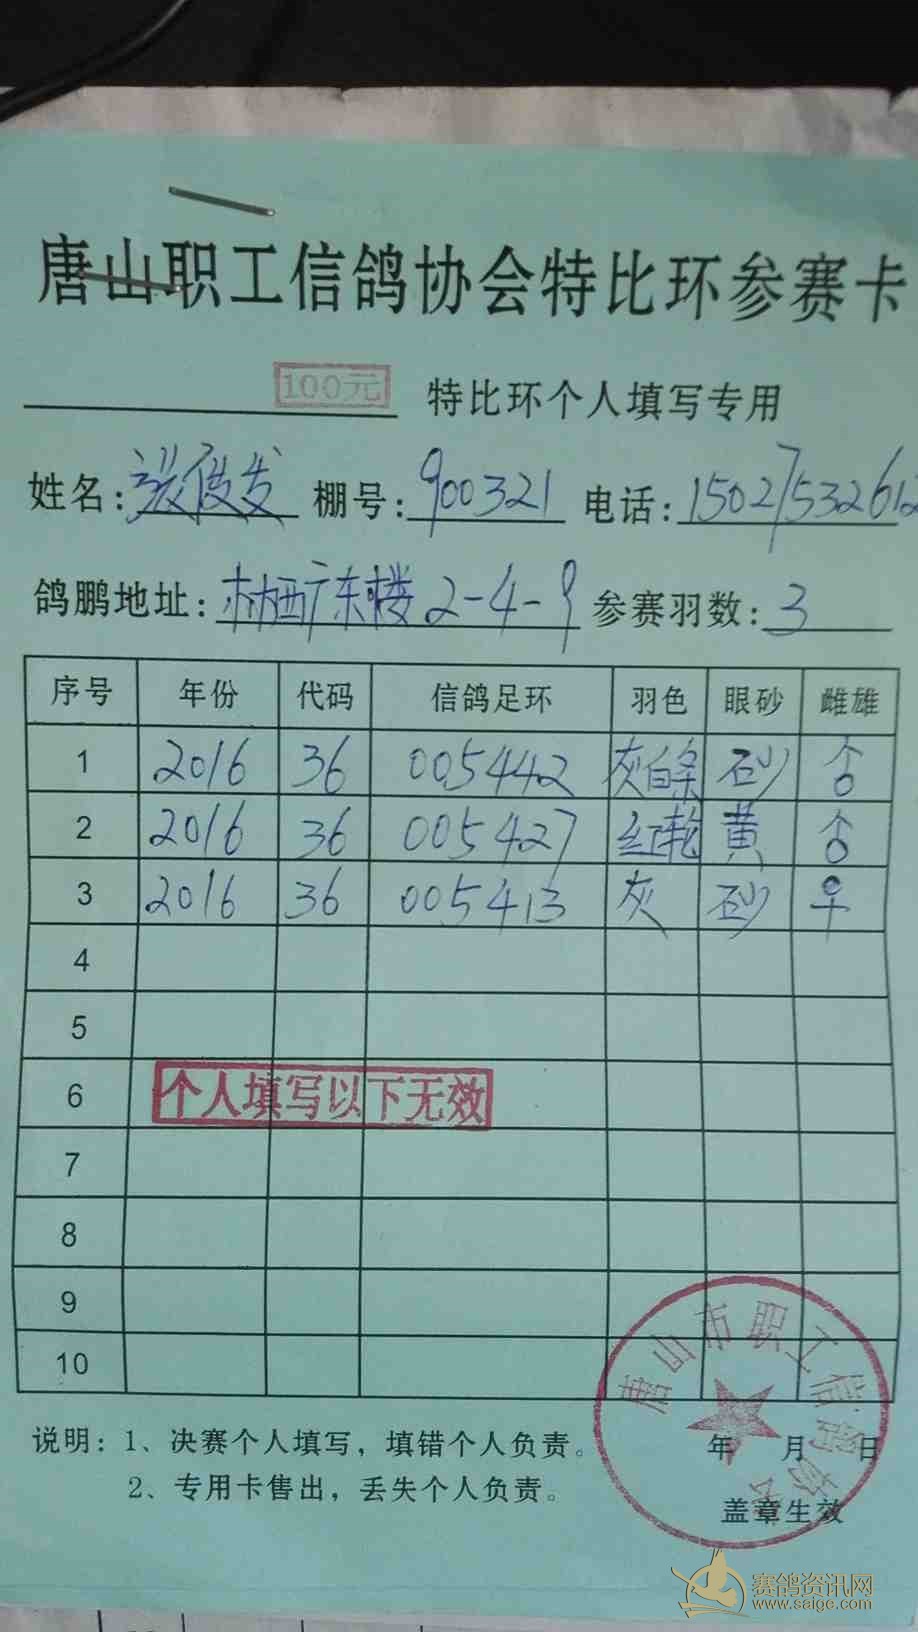 唐山职工信鸽协会特比环参赛卡
100元 特比环个人填写专用
姓名：张俊发 棚号：900321 电话：15027532612
鸽鹏地址：林西广东楼2-4-9 参赛羽数：3
序号 年份 代码 信鸽足环 羽色 眼砂 雌雄
1 2016 36 005442 灰白条 砂 ♂
2 2016 36 005427 红轮 黄 ♂
3 2016 36 005413 灰 砂 ♀
4
5
6 个人填写以下无效
7
8
9
10
唐山市职工信鸽协会
说明：1、决赛个人填写，填错个人负责。 年 月 日
2、专用卡售出，丢失个人负责。
盖章生效
赛鸽资讯网
www.saige.com